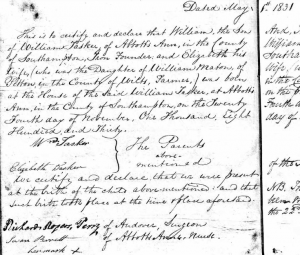 Dated May 1st 1831
This is to certify and declare that William, the Son
of William Tasker of Abbotts Ann, in the County
of Southampton, Iron Founder, and Elizabeth his
Wife, (who was the Daughter of William
in the County of Wilts, Farmer,) was born
at the House of the Said William Tasker, at Abbotts
Ann, in the County of Southampton, on the Twenty
Fourth day of November, One Thousand, Eight
Hundred, and Thirty.
Wm Tasker
Elizabeth Tasker
The Parents
above
mentioned
We certify, and declare that we were present
at the birth of the child abovementioned, and that
such birth took place at the time & place aforesaid.
of Andover Surgeon
of Abbotts Ann, Nurse.
And,
day of
of the
NB. Th
the 23